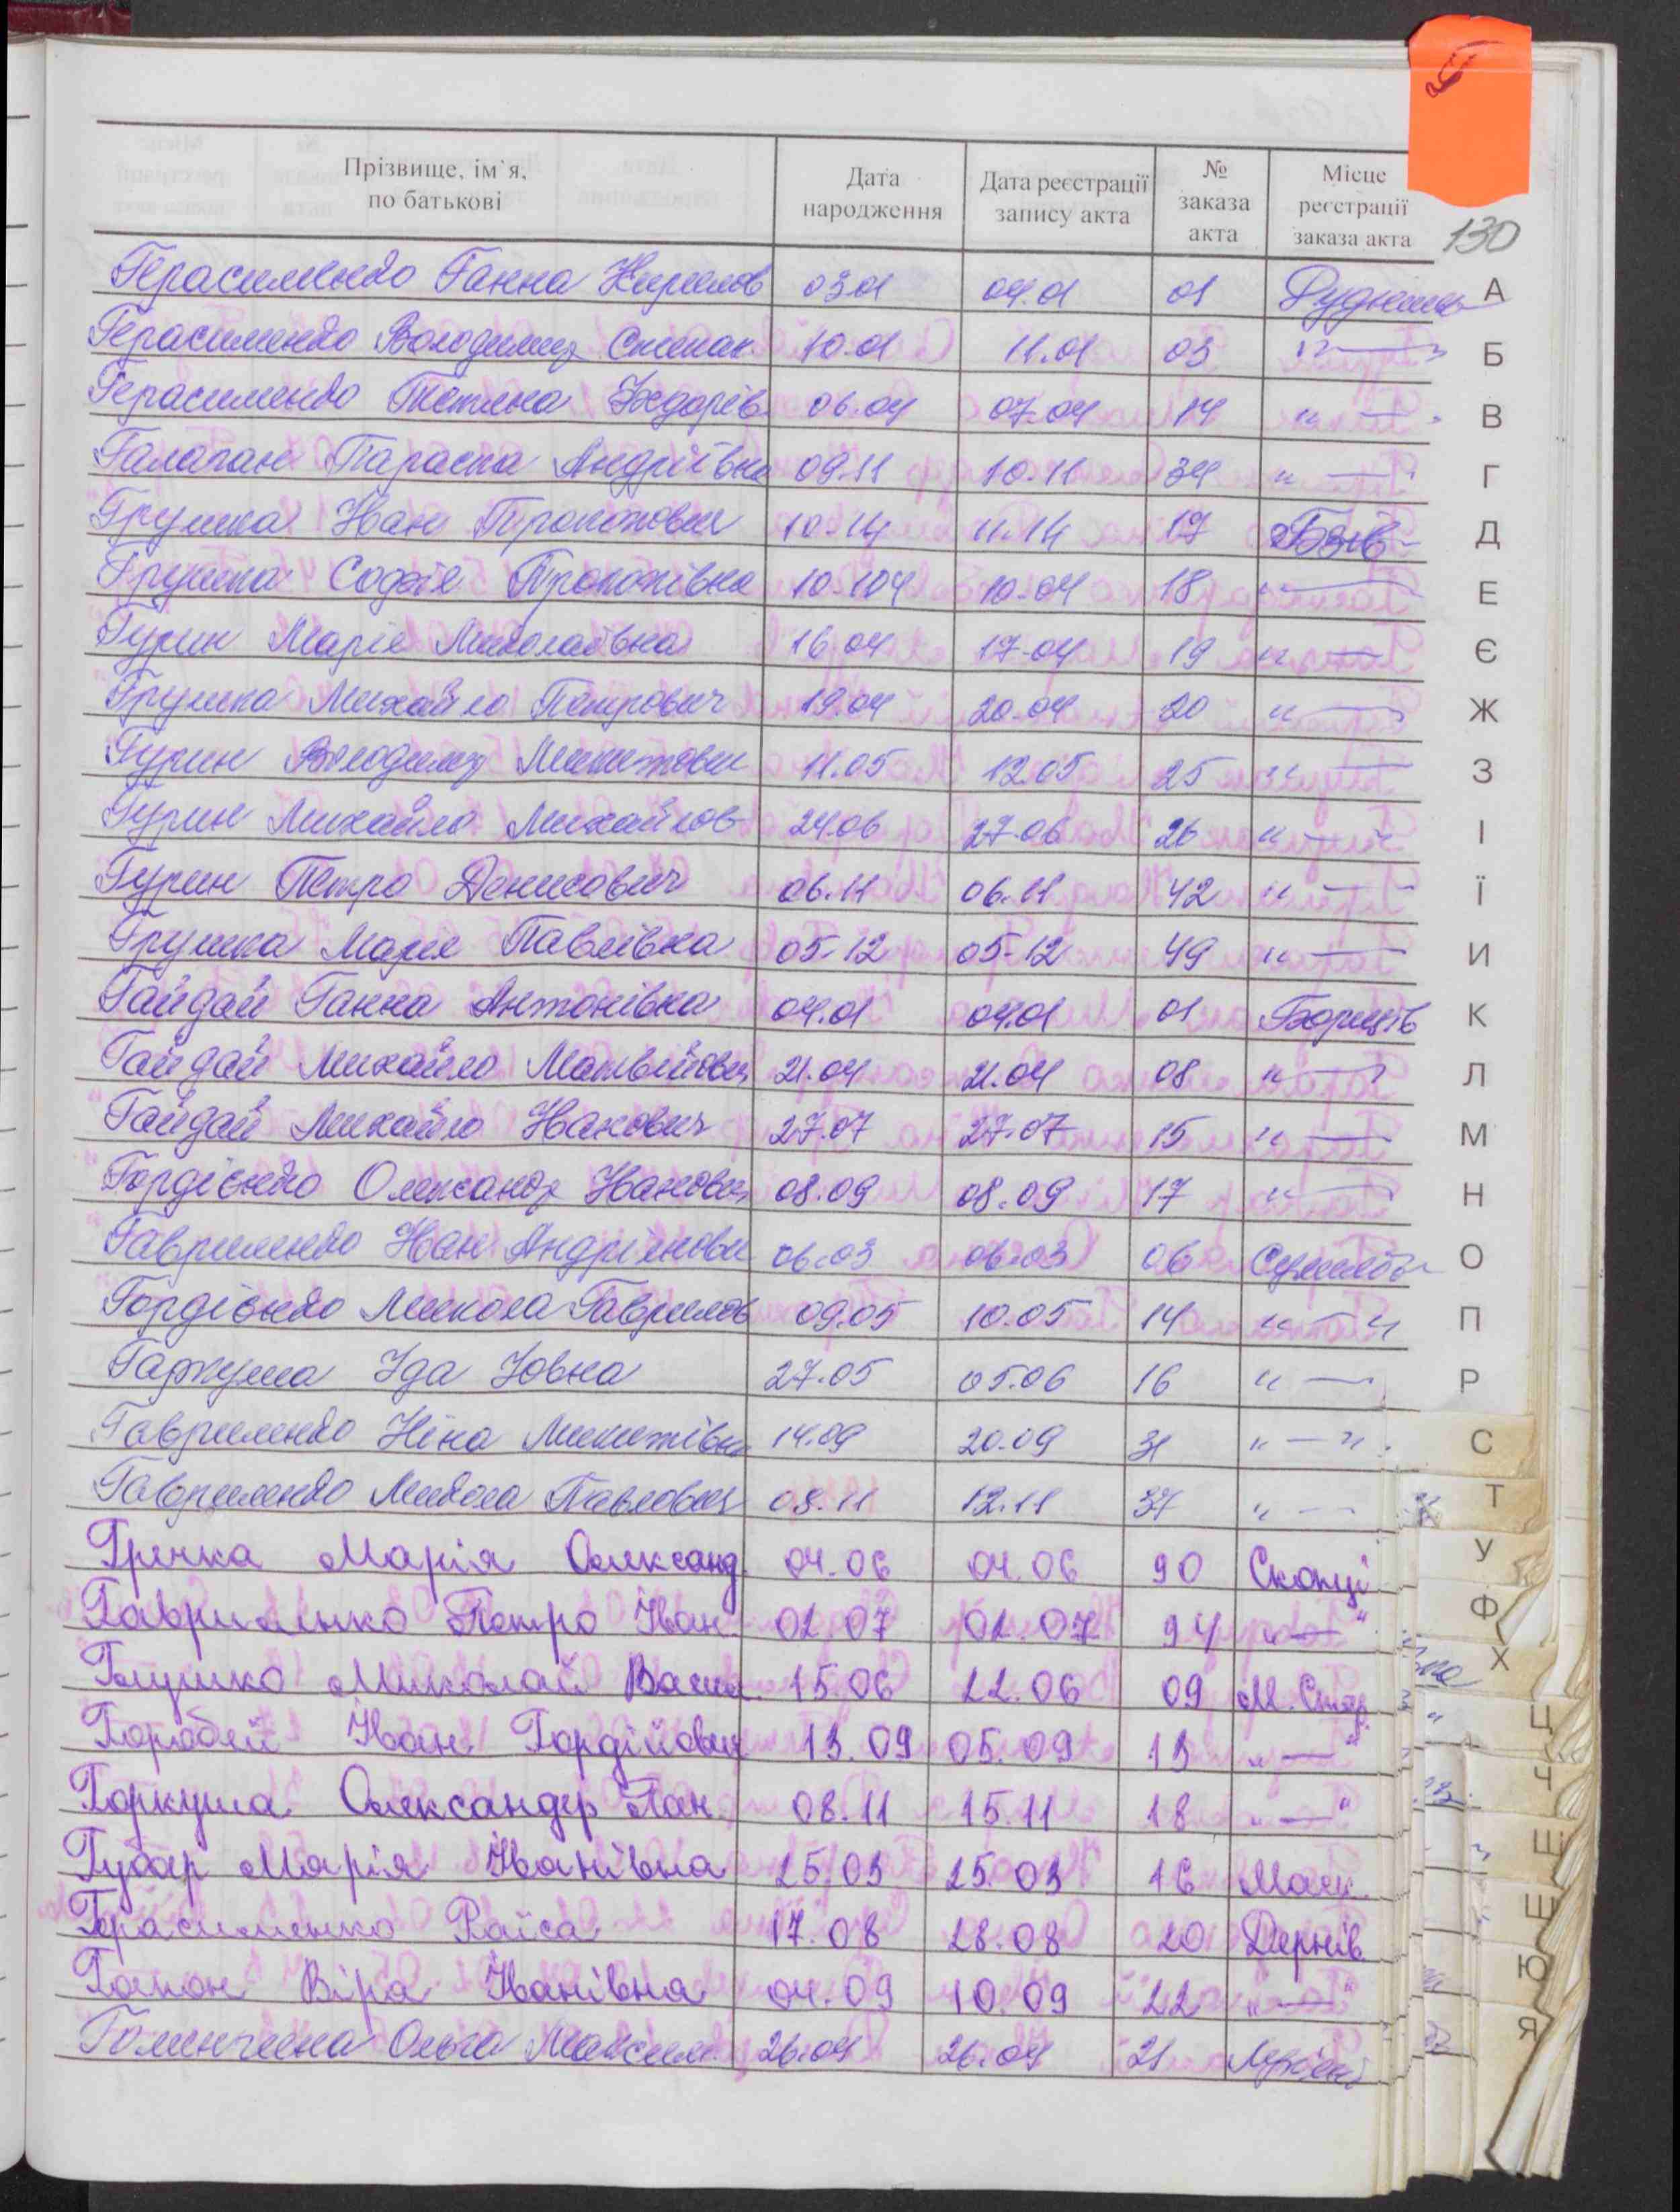 Г
Прізвище, ім`я, по батькові Дата народження Дата реєстрації запису акта № заказа акта Місце реєстрації заказа акта
130
Герасименко Ганна Кирилов 03.01 04.01 01 А
Герасименко Володимир Степан. 10.01 11.01 03 " — " Б
Герасименко Тетяна Федорів. 06.04 07.04 14 " — " В
Галаган Параска Андріївна 09.11 10.11 34 " — " Г
Грушка Іван Прокопович 10.14 11.14 17 Бзів Д
Грушка Софія Прокопівна 10.104 10.04 18 " — Е
Гурин Марія Миколаївна 16.04 17.04 19 " — Є
Грушка Михайло Петрович 19.04 20.04 20 " — Ж
Гурин Володимир Микитович 11.05 12.05 25 " — З
Гурин Михайло Михайлов 24.06 27.06 26 " — " І
Гурин Петро Денисович 06.11 06.11 42 " — Ї
Грушка Марія Павлівна 05-12 05-12 49 " — И
Гайдай Ганна Антонівна 04.01 04.01 01 Борщів К
Гайдай Михайло Матвійович 21.04 21.04 08 " — Л
Гайдай Михайло Іванович 27.07 27.07 15 " — М
Гордієнко Олександр Іванович 08.09 08.09 17 " — Н
Гавриленко Іван Андріянови 06.03 06.03 06 О
Гордієнко Микола Гаврилов 09.05 10.05 14 " — " П
Гаркуша Іда Іовна 27.05 05.06 16 " — Р
Гавриленко Ніна Микитівна 14.09 20.09 31 " — " С
Гавриленко Микола Павлович 08.11 12.11 37 " — Т
Гречка Марія Олександ. 04.06 04.06 90 Скопці У
Гавриленко Петро Іван. 02.07 02.07 94 " — " Ф
Глушко Миколай Васил. 15.06 22.06 09 М. Стар. Х
Горобей Іван Гордійович 13.09 05.09 13 " — " Ц
Горкуша Олександер Пан. 08.11 15.11 18 " — " Ч
Губар Марія Іванівна 25.03 25.03 16 Ш
Герасименко Раїса 17.08 28.08 20 Дернів. Щ
Гапон Віра Іванівна 04.09 10.09 22 " — " Ю
Ольга Максим. 26.04 26.04 21 Я